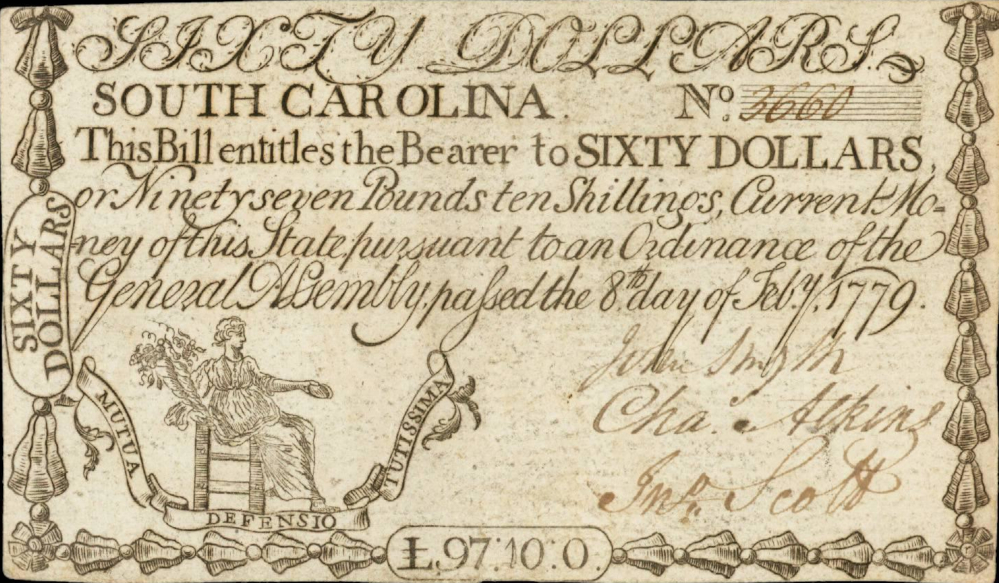 SIXTY DOLLARS.
SOUTH CAROLINA. No. 3660
This Bill entitles the Bearer to SIXTY DOLLARS,
or Ninety seven Pounds ten Shillings, Current Mo=
ney of this State, pursuant to an Ordinance of the
General Aſsembly, paſsed the 8th day of Feby. 1779.
SIXTY
DOLLARS
John Smyth
Chas. Atkins
Jno. Scott
MUTUA
DEFENSIO
TUTISSIMA
Ł.97.10.0.